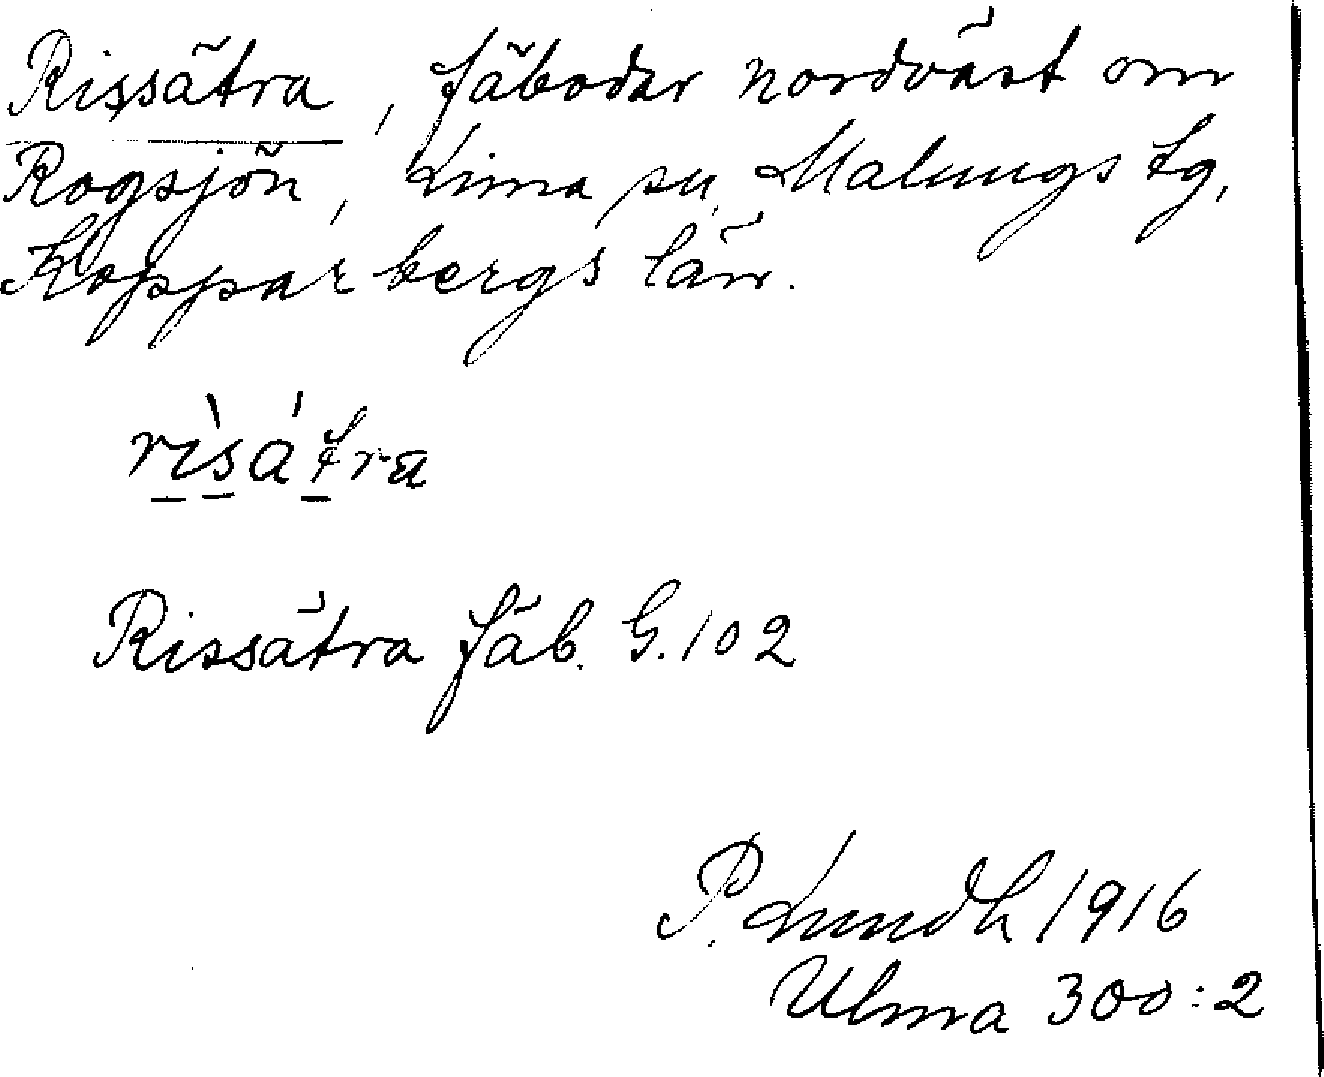 Rissätra, fäbodar nordväst om
Rogsjön, Lima sn, Malungs tg,
Kopparbergs län.
rìsátra
Rissätra fäb. G.102
P. Lundh 1916
Ulma 300:2